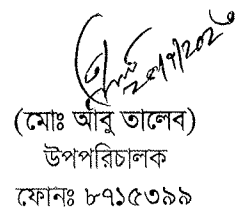 (মোঃ আবু তালেব)
উপপরিচালক
ফোনঃ ৮৭১৫৩৯৯